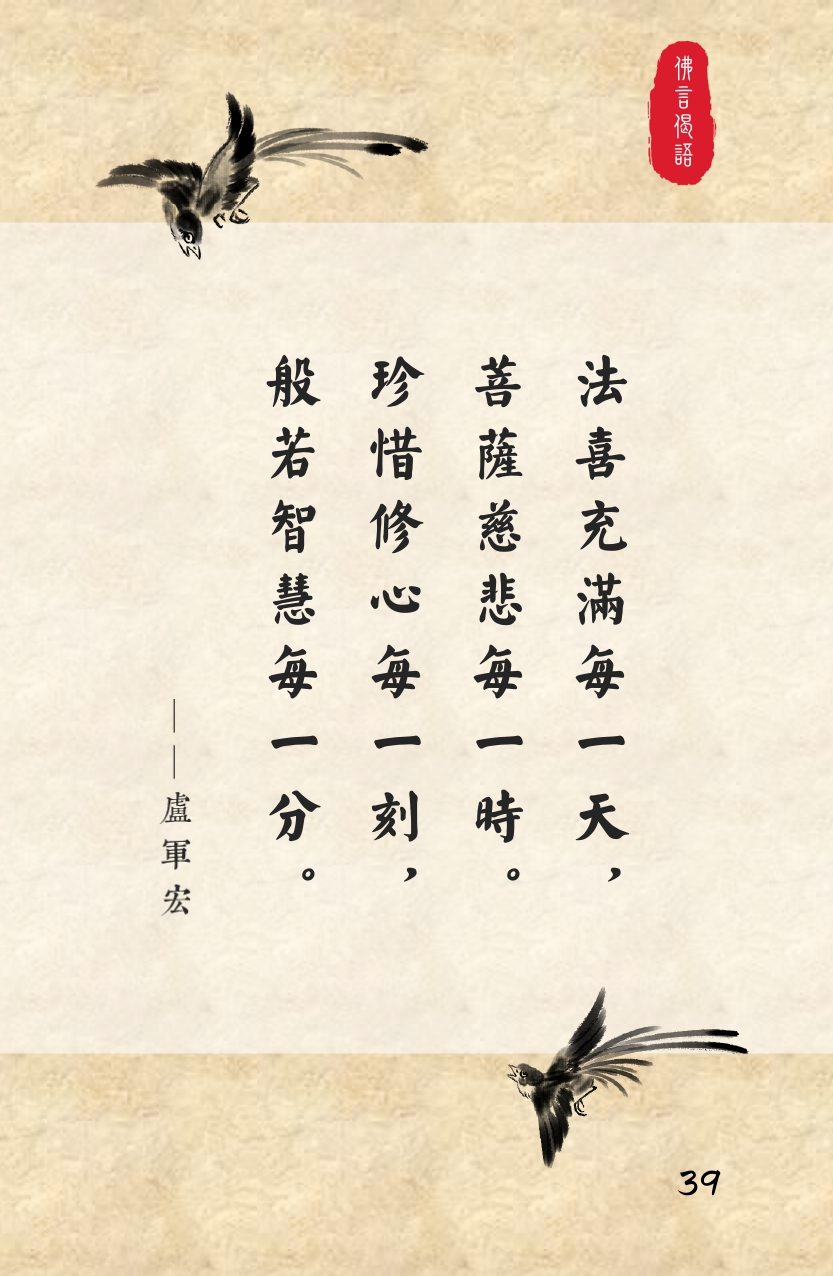 佛言偈語
法喜充滿每一天，
菩薩慈悲每一時。
珍惜修心每一刻，
般若智慧每一分。
——盧軍宏
39